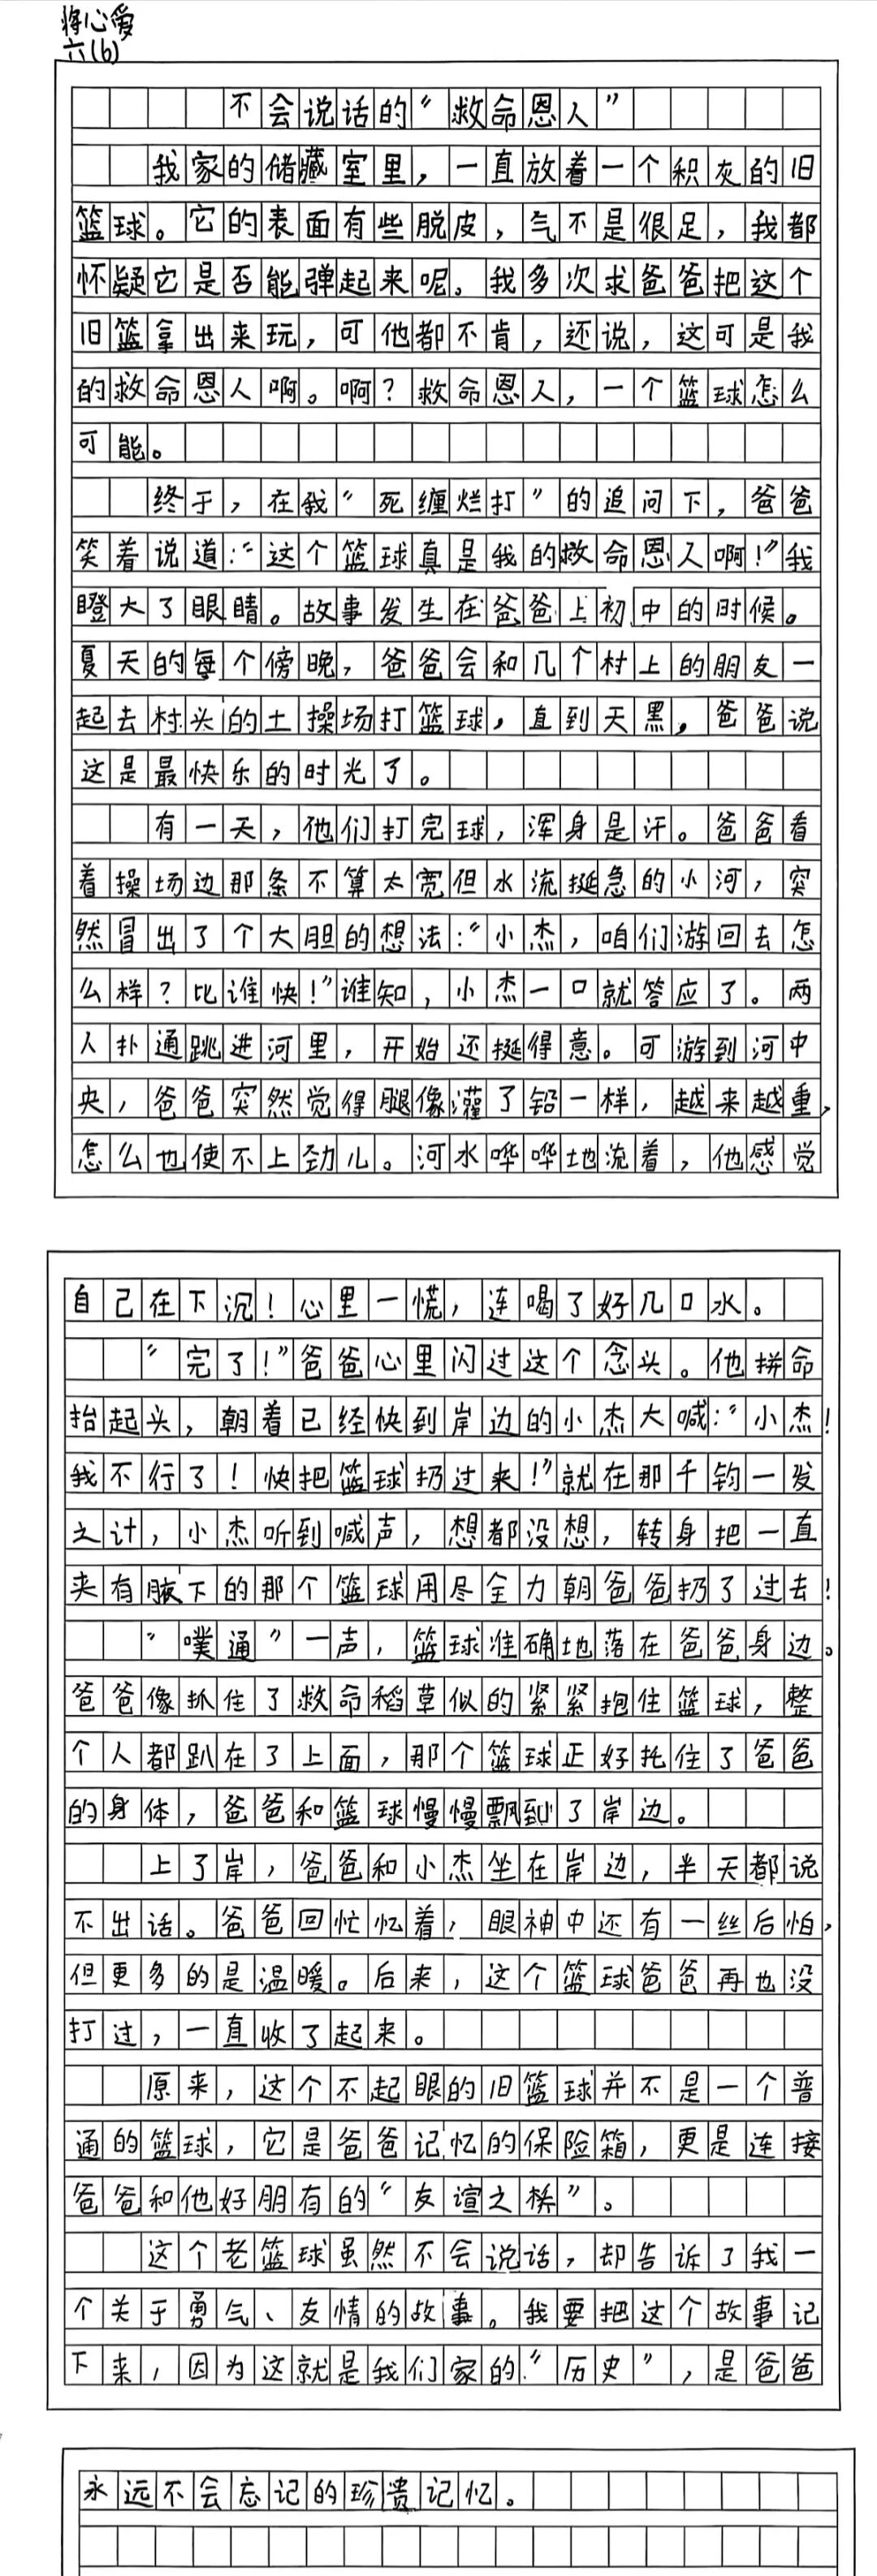 蒋心爱
六(6)
不会说话的“救命恩人”
我家的储藏室里，一直放着一个积灰的旧
篮球。它的表面有些脱皮，气不是很足，我都
怀疑它是否能弹起来呢。我多次求爸爸把这个
旧篮拿出来玩，可他都不肯，还说，这可是我
的救命恩人啊。啊？救命恩人，一个篮球怎么
可能。
终于，在我“死缠烂打”的追问下，爸爸
笑着说道：“这个篮球真是我的救命恩人啊！”我
瞪大了眼睛。故事发生在爸爸上初中的时候。
夏天的每个傍晚，爸爸会和几个村上的朋友一
起去村头的土操场打篮球，直到天黑，爸爸说
这是最快乐的时光了。
有一天，他们打完球，浑身是汗。爸爸看
着操场边那条不算太宽但水流挺急的小河，突
然冒出了个大胆的想法：“小杰，咱们游回去怎
么样？比谁快！”谁知，小杰一口就答应了。两
人扑通跳进河里，开始还挺得意。可游到河中
央，爸爸突然觉得腿像灌了铅一样，越来越重，
怎么也使不上劲儿。河水哗哗地流着，他感觉
自己在下沉！心里一慌，连喝了好几口水。
“完了！”爸爸心里闪过这个念头。他拼命
抬起头，朝着已经快到岸边的小杰大喊：“小杰！
我不行了！快把篮球扔过来！”就在那千钧一发
之计，小杰听到喊声，想都没想，转身把一直
夹有腋下的那个篮球用尽全力朝爸爸扔了过去！
“噗通”一声，篮球准确地落在爸爸身边。
爸爸像抓住了救命稻草似的紧紧抱住篮球，整
个人都趴在了上面，那个篮球正好托住了爸爸
的身体，爸爸和篮球慢慢飘到了岸边。
上了岸，爸爸和小杰坐在岸边，半天都说
不出话。爸爸回忙忆着，眼神中还有一丝后怕，
但更多的是温暖。后来，这个篮球爸爸再也没
打过，一直收了起来。
原来，这个不起眼的旧篮球并不是一个普
通的篮球，它是爸爸记忆的保险箱，更是连接
爸爸和他好朋有的“友谊之桥”。
这个老篮球虽然不会说话，却告诉了我一
个关于勇气、友情的故事。我要把这个故事记
下来，因为这就是我们家的“历史”，是爸爸
永远不会忘记的珍贵记忆。